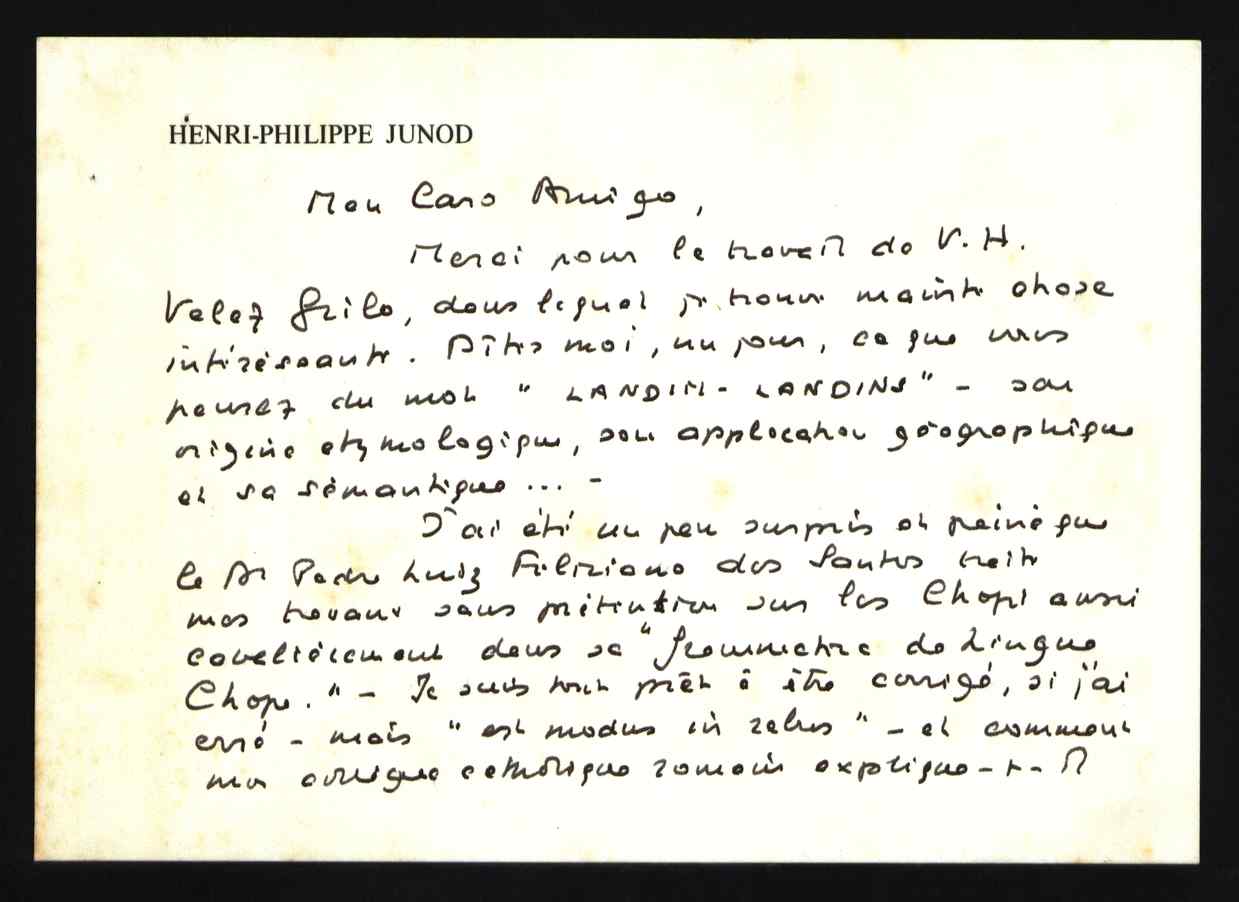 HENRI-PHILIPPE JUNOD
Mon Caro Amigo,
Merci pour le travail de V. H.
Velez Grilo, dans lequel je trouve mainte chose
intéressante. Dîtes moi, un jour, ce que vous
pensez du mot " LANDIM - LANDINS " - son
origine etymologique, son application géographique
et sa sémantique ... -
J'ai été un peu surpris et peiné que
le Dr Padre Luiz Feliziano dos Santos traite
mes travaux sans prétention sur les Chopi aussi
cavalièrement dans sa "Grammatica da Lingua
Chope." - Je suis tout prêt à être corrigé, si j'ai
erré - mais " est modus in rebus " - et comment
mon collègue catholique romain explique-t-il